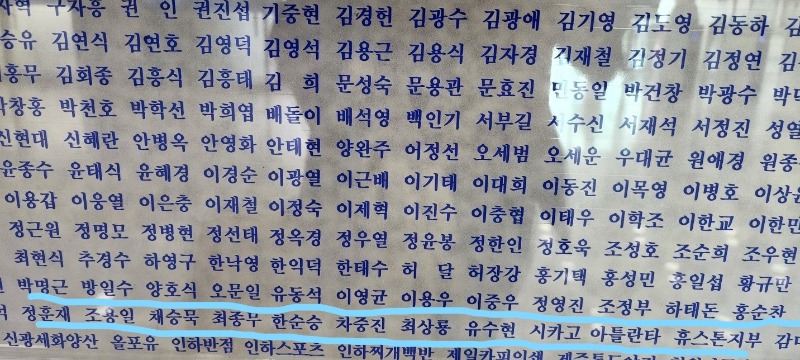 구자흥 권 인 권진섭 기중현 김경헌 김광수 김광애 김기영 김도영 김동하
김연식 김연호 김영덕 김영석 김용근 김용식 김자경 김재철 김정기 김정연
김회종 김흥식 김흥태 김 희 문성숙 문용관 문효진 민동일 박건창 박광수
박천호 박학선 박희엽 배돌이 배석영 백인기 서부길 서수신 서재석 서정진
신현대 신혜란 안병옥 안영화 안태현 양완주 어정선 오세범 오세운 우대균 원애경
윤종수 윤태식 윤혜경 이경순 이광열 이근배 이기태 이대희 이동진 이목영 이병호
이용갑 이웅열 이은충 이재철 이정숙 이제혁 이진수 이충협 이태우 이학조 이한교
정근원 정명모 정병현 정선태 정옥경 정우열 정윤봉 정한인 정호욱 조성호 조순희 조우현
최현식 추경수 하영구 한낙영 한익덕 한태수 허 달 허장강 홍기택 홍성민 홍일섭 황규만
박명근 방일수 양호식 오문일 유동석 이영균 이용우 이중우 정영진 조정부 하태돈 홍순찬
정훈재 조용일 채승묵 최종무 한순승 차중진 최상룡 유수현 시카고 아틀란타 휴스톤지부
신광세화양산 올포유 인하반점 인하스포츠 인하찌개백반